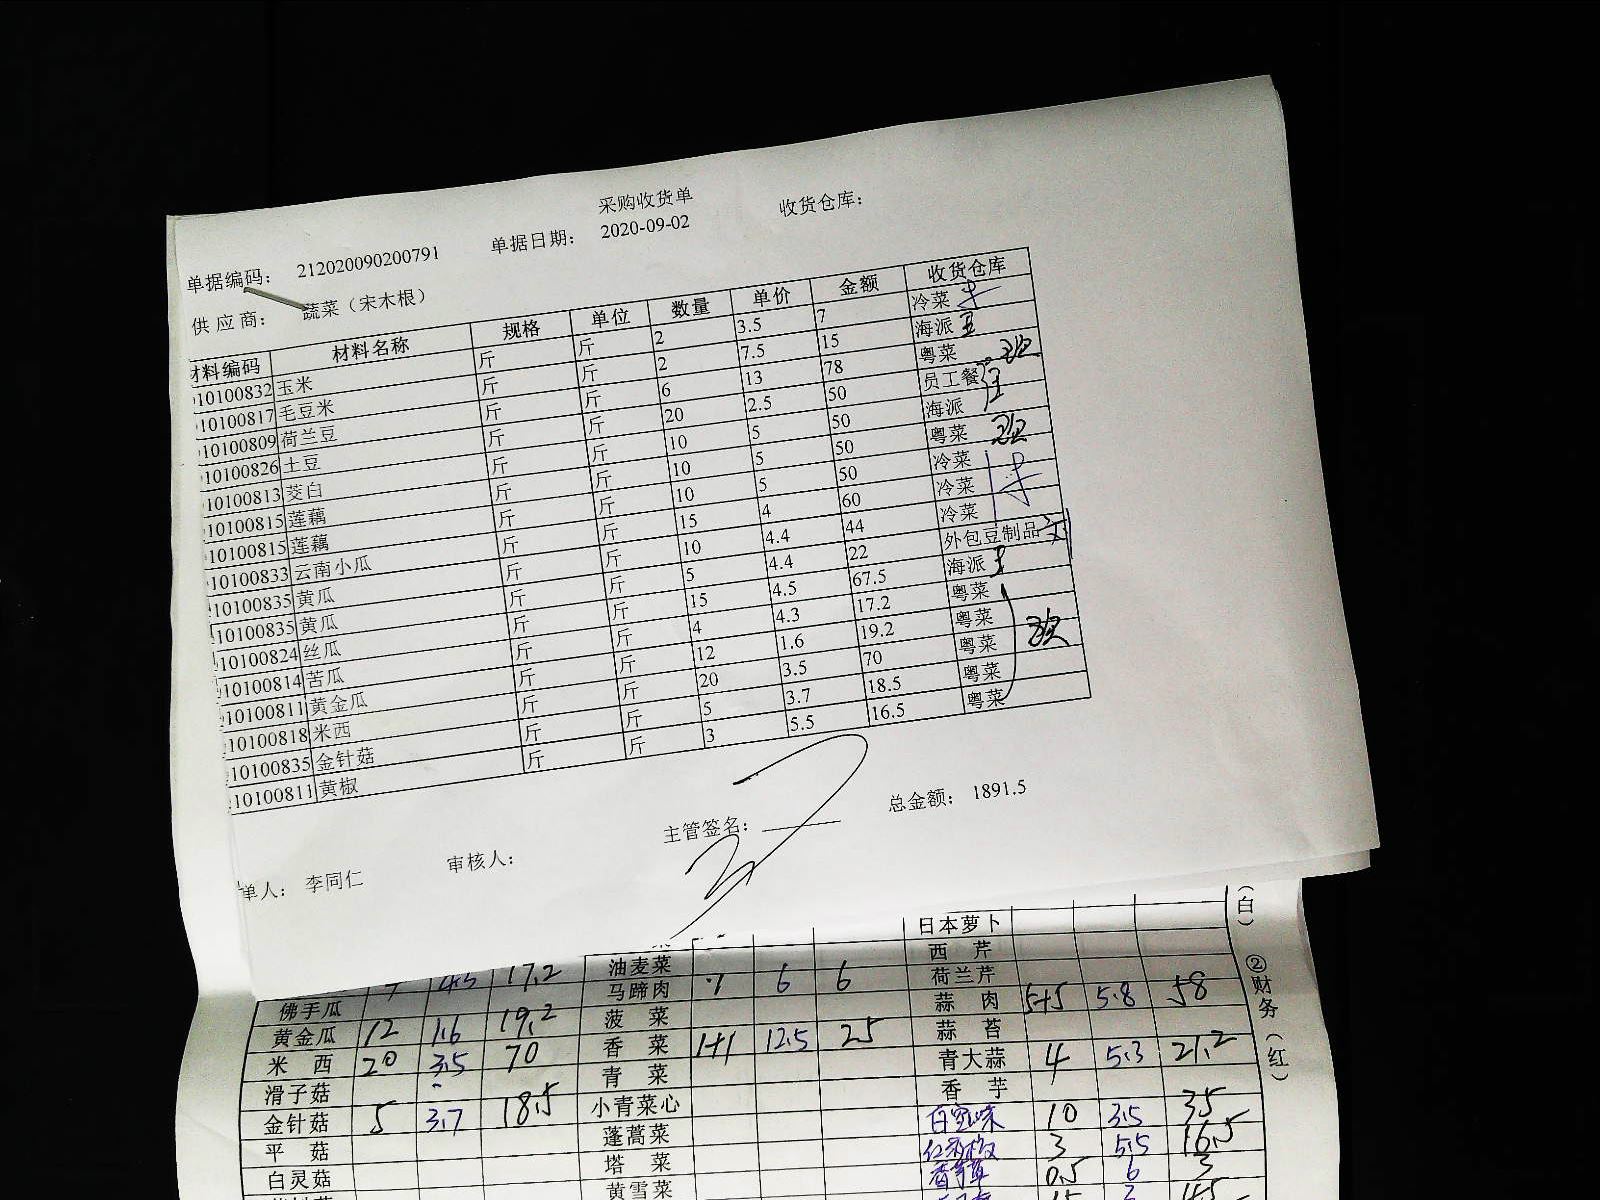 采购收货单
单据编码： 212020090200791 单据日期： 2020-09-02 收货仓库：
供应商： 蔬菜（宋木根）
材料编码 材料名称 规格 单位 数量 单价 金额 收货仓库
10100832 玉米 斤 斤 2 3.5 7 冷菜
10100817 毛豆米 斤 斤 2 7.5 15 海派 王
10100809 荷兰豆 斤 斤 6 13 78 粤菜
10100826 土豆 斤 斤 20 2.5 50 员工餐
10100813 茭白 斤 斤 10 5 50 海派
10100815 莲藕 斤 斤 10 5 50 粤菜
10100815 莲藕 斤 斤 10 5 50 冷菜
10100833 云南小瓜 斤 斤 15 4 60 冷菜
10100835 黄瓜 斤 斤 10 4.4 44 冷菜
10100835 黄瓜 斤 斤 5 4.4 22 外包豆制品
10100824 丝瓜 斤 斤 15 4.5 67.5 海派
10100814 苦瓜 斤 斤 4 4.3 17.2 粤菜
10100811 黄金瓜 斤 斤 12 1.6 19.2 粤菜
10100818 米西 斤 斤 20 3.5 70 粤菜
10100835 金针菇 斤 斤 5 3.7 18.5 粤菜
10100811 黄椒 斤 斤 3 5.5 16.5 粤菜
单人： 李同仁 审核人： 主管签名： 总金额： 1891.5
日本萝卜
17.2 油麦菜 西芹
佛手瓜 马蹄肉 1 6 6 荷兰芹
黄金瓜 12 1.6 19.2 菠菜 蒜肉 5+5 5.8 58
米西 20 3.5 70 香菜 1+1 12.5 25 蒜苔
滑子菇 青菜 青大蒜 4 5.3 21.2
金针菇 5 3.7 18.5 小青菜心 香芋
平菇 蓬蒿菜 10 3.5 35
白灵菇 塔菜 3 5.5 16.5
黄雪菜 0.5 6 3
（白） ②财务（红）